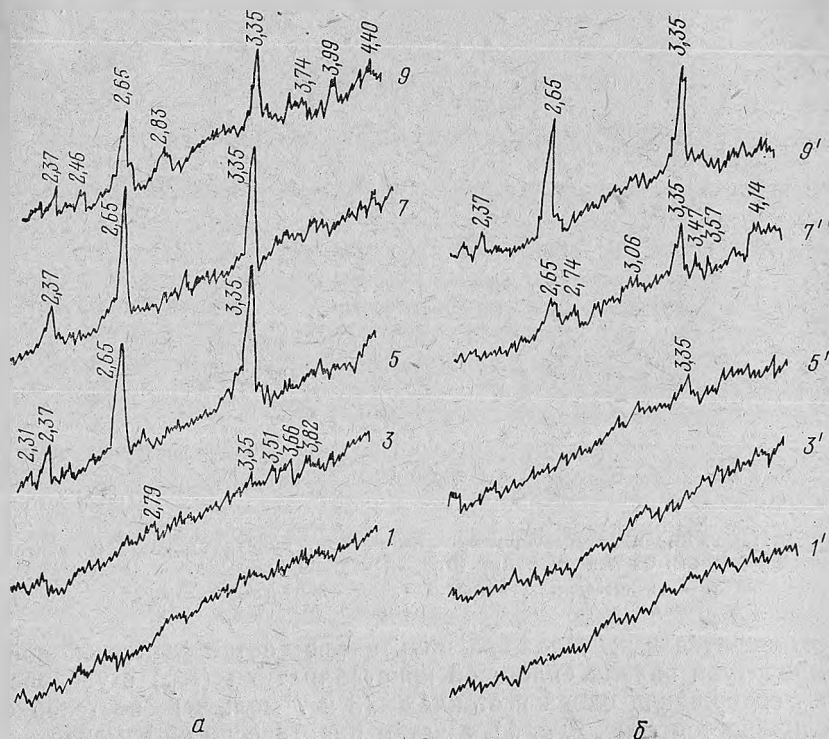 2,37 2,46 2,65 2,83 3,35 3,74 3,99 4,40 9
2,37 2,65 3,35 7
2,31 2,37 2,65 3,35 5
2,79 3,35 3,51 3,66 3,82 3
1
а
2,37 2,65 3,35 9'
2,65 2,74 3,06 3,35 3,47 3,57 4,14 7'
3,35 5'
3'
1'
б